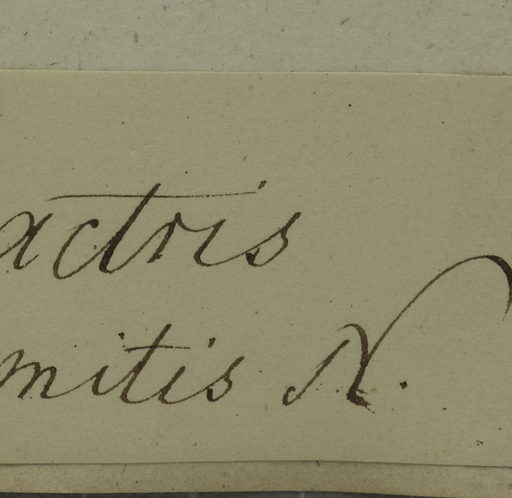 actris
mitis N.